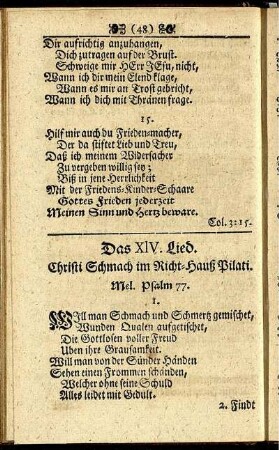 (48)
Dir aufrichtig anzuhangen,
Dich zutragen auf der Brust.
Schweige mir HErr JEsu, nicht,
Wann ich dir mein Elend klage,
Wann es mir an Trost gebricht,
Wann ich dich mit Thränen frage.
15.
Hilf mir auch du Frieden-macher,
Der da stiftet Lieb und Treu,
Daß ich meinem Widersacher
Zu vergeben willig sey;
Biß in jene Herrlichkeit
Mit der Friedens-Kinder-Schaare
Gottes Frieden jederzeit
Meinen Sinn und Hertz beware.
Col. 3:15.
Das XIV. Lied.
Christi Schmach im Richt-Hauß Pilati.
Mel. Psalm 77.
1.
WIll man Schmach und Schmertz gemischet,
Wunden Qualen aufgetischet,
Die Gottlosen voller Freud
Uben ihre Grausamkeit.
Will man von der Sünder Händen
Sehen einen Frommen schänden,
Welcher ohne seine Schuld
Alles leidet mit Gedult.
2. Findt